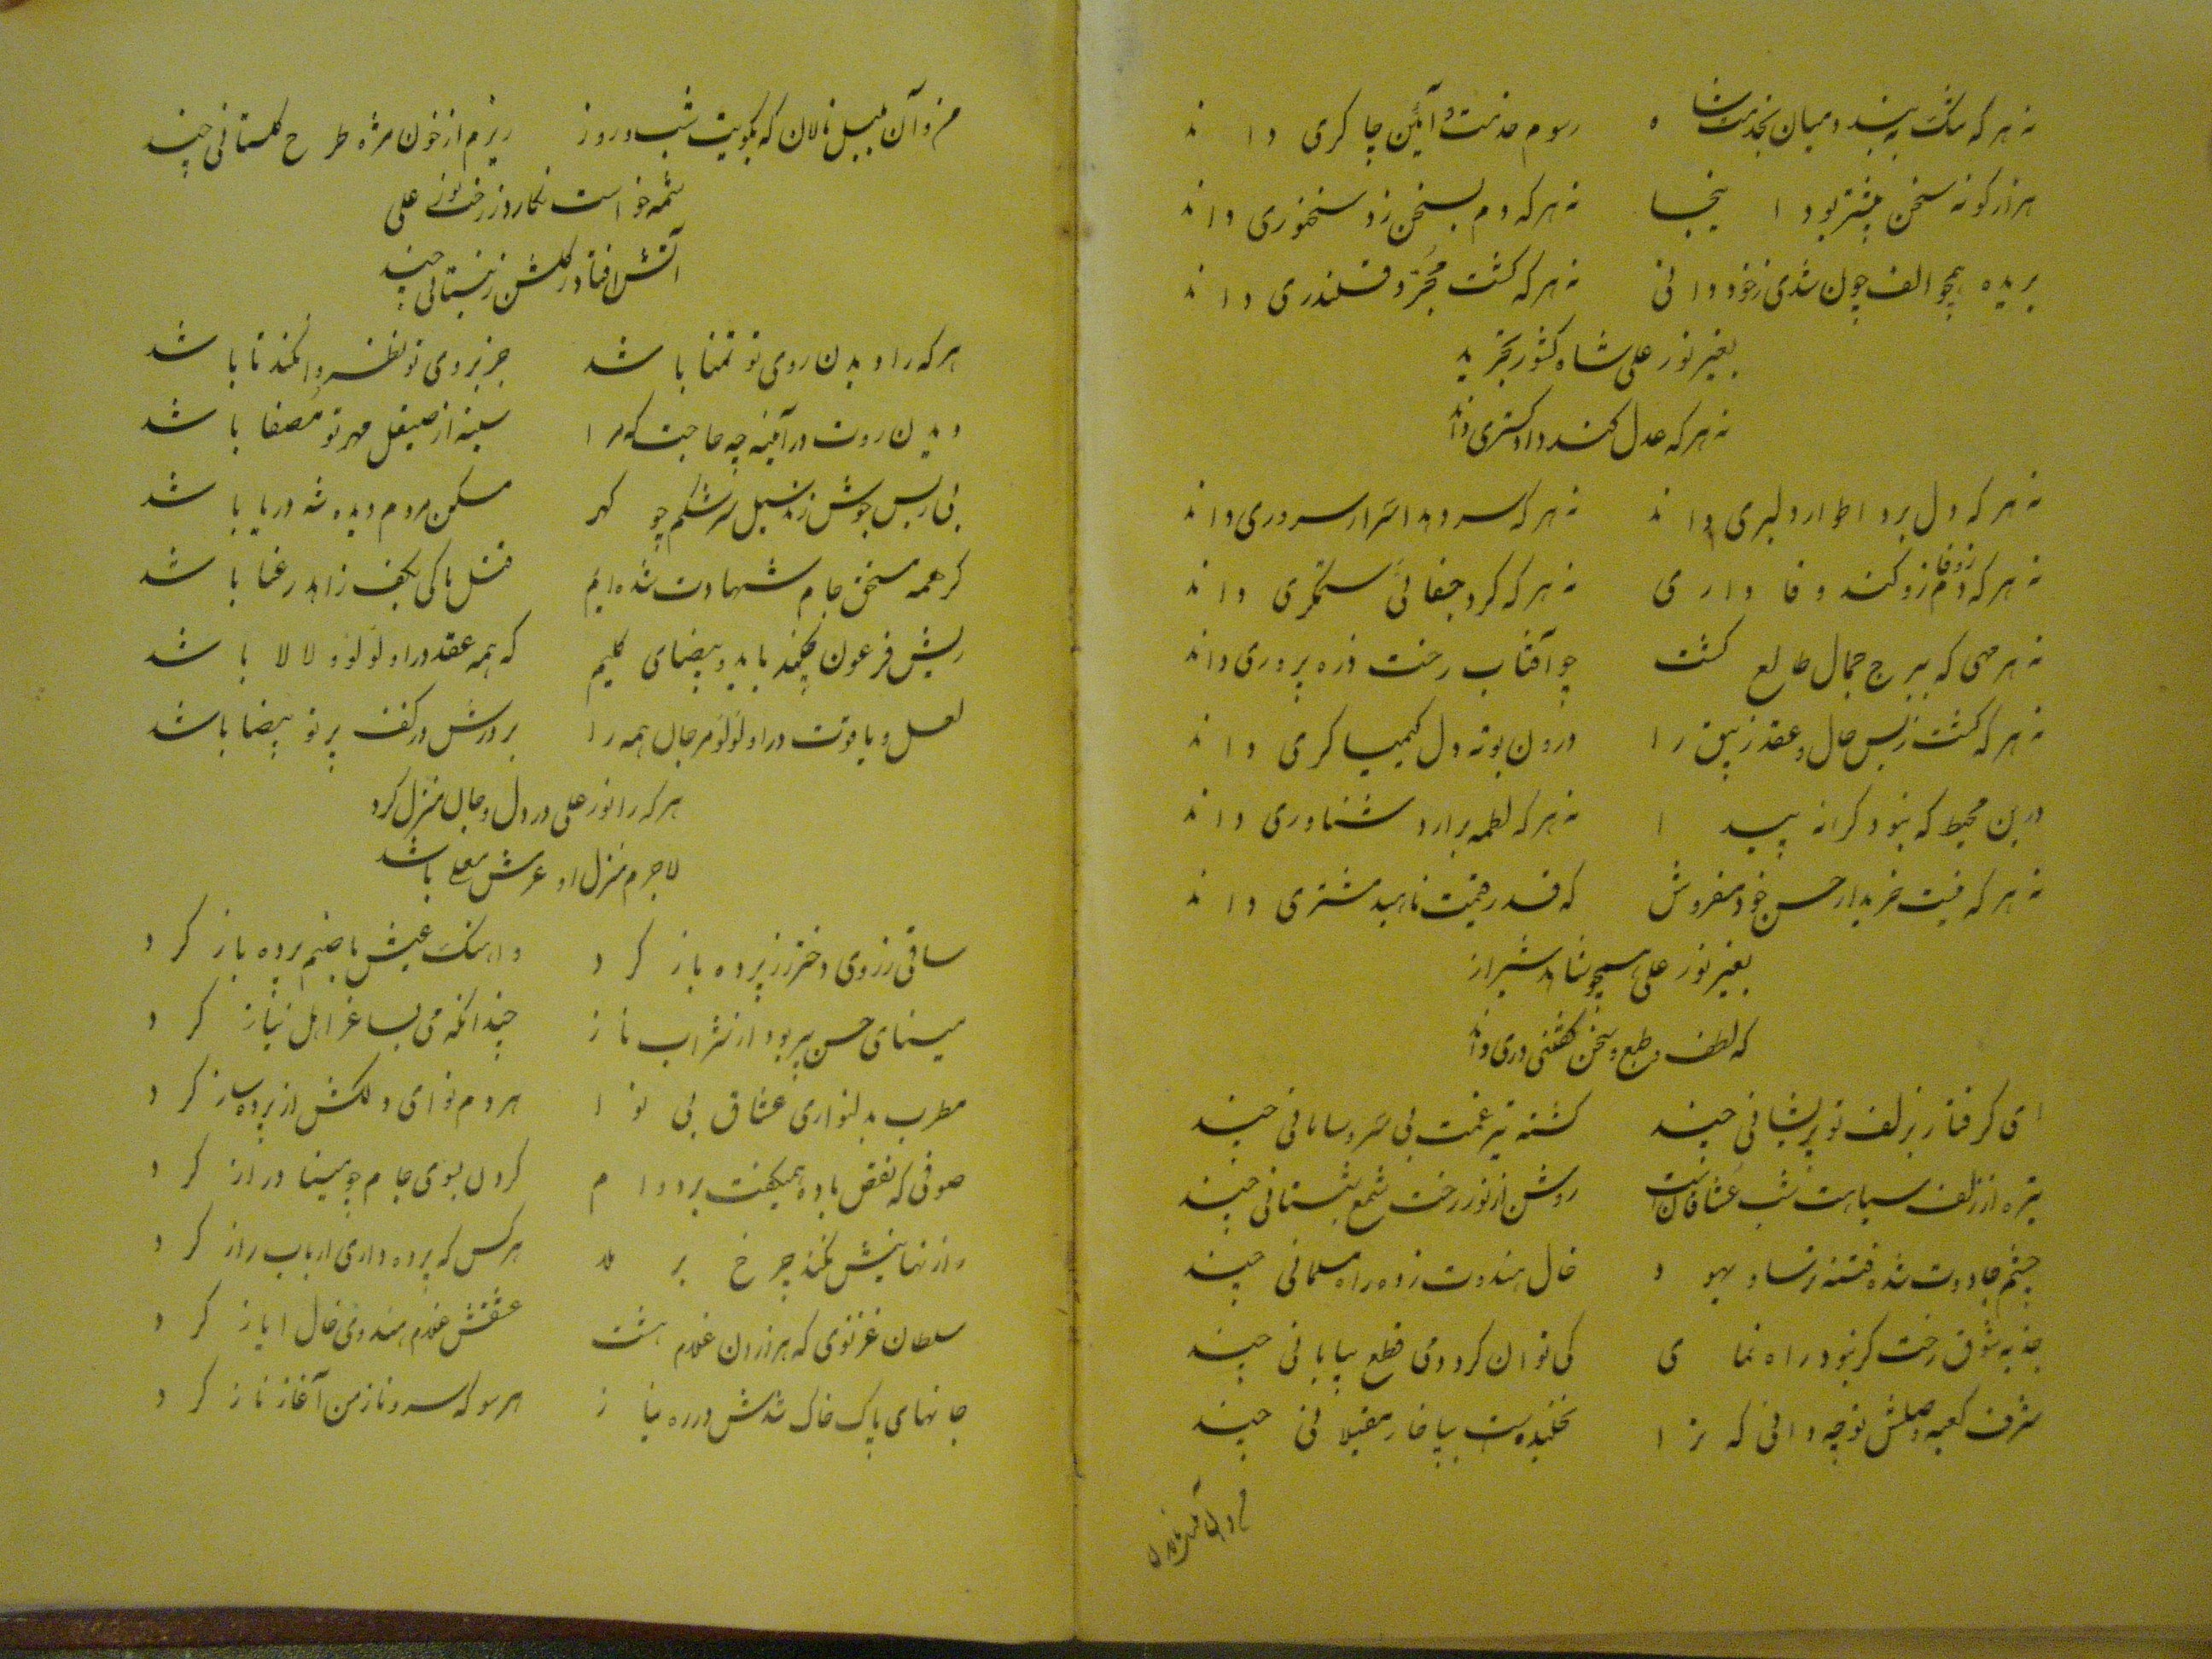 نه هرکه تنگ ببندد میان بخدمت شاه رسوم خدمت و آئین چاکری داند
هزار گونه سخن بیشتر بود اینجا نه هرکه دم بسخن زد سخنوری داند
بریده همچو الف چون شدی ز خود دانی نه هرکه گشت مجرّد قلندری داند
بغیر نور علی شاه کشور تجرید
نه هرکه عدل کند دادگستری داند
نه هرکه دل برد اطوار دلبری داند نه هرکه سر دهد اسرار سروری داند
نه هرکه دم ز وفا زد کند وفاداری نه هرکه کرد جفائی ستمگری داند
نه هر مهی که ببرج جمال طالع گشت چو آفتاب رخت ذره پروری داند
نه هرکه گشت ز پس حل و عقد زیبق را درون بوته دل کیمیاگری داند
درین محیط که نبود کرانه پیدا نه هرکه لطمه برآرد شناوری داند
نه هرکه نیست خریدار حسن خود مفروش که قدر قیمت ناهید مشتری داند
بغیر نور علی همچو شاهد شیراز
که لطف طبع و سخن گفتن دری داند
ای گرفتار بزلف تو پریشانی چند کشته تیر غمت بی سر و سامانی چند
تیره از زلف سیاهت شب عشاقانست روشن از نور رخت شمع شبستانی چند
چشم جادوت شده فتنه ترسا و یهود خال هندوت زده راه مسلمانی چند
جذبه شوق رخت گر نبود راه نمای کی توان کرد دمی قطع بیابانی چند
شرف کعبه وصلش تو چه دانی که ترا نخلیدست بپا خار مغیلانی چند
منم و آن بلبل نالان که بکویت شب و روز ریزم از خون مژه طرح گلستانی چند
شمه خواست نگارد ز رخت نور علی
آتش افتاد در گلشن ز نیستانی چند
هرکه را دیدن روی تو تمنا باشد جز بروی تو نظر وا نکند تا باشد
دیدن روت در آئینه چه حاجت که مرا سینه از صیقل مهر تو مصفا باشد
بی رخت بس جوش زند سیل سرشکم چو گهر مسکن مردم دیده شه دریا باشد
گر همه مستحق جام شهادت شده‌ایم قتل ما کی بکف زاهد رعنا باشد
ریش فرعون چکند با ید و بیضای کلیم که همه عقد در او لؤلؤ و لالا باشد
لعل و یاقوت در او لؤلؤ مرجان همه را بر درش در کف پرتو بیضا باشد
هرکه را نور علی در دل و جان منزل کرد
لاجرم منزل او عرش معلی باشد
ساقی ز روی دختر رز پرده باز کرد و آهنگ عیش با صنم پرده باز کرد
مینای حسن پر بود از شراب ناز چندانکه می بساغر اهل نیاز کرد
مطرب بدلنوازی عشاق بی نوا هر دم نوای دلکش از پرده ساز کرد
صوفی که نقض باده همیگفت بر دوام گردن بسوی جام چو مینا دراز کرد
راز نهانیش نکند چرخ برملا هر کس که پرده داری ارباب راز کرد
سلطان غزنوی که هزاران غلام داشت عشقش غلام هندوی خال ایاز کرد
جانهای پاک خاک شدش در ره نیاز هر سو که سرو ناز من آغاز ناز کرد